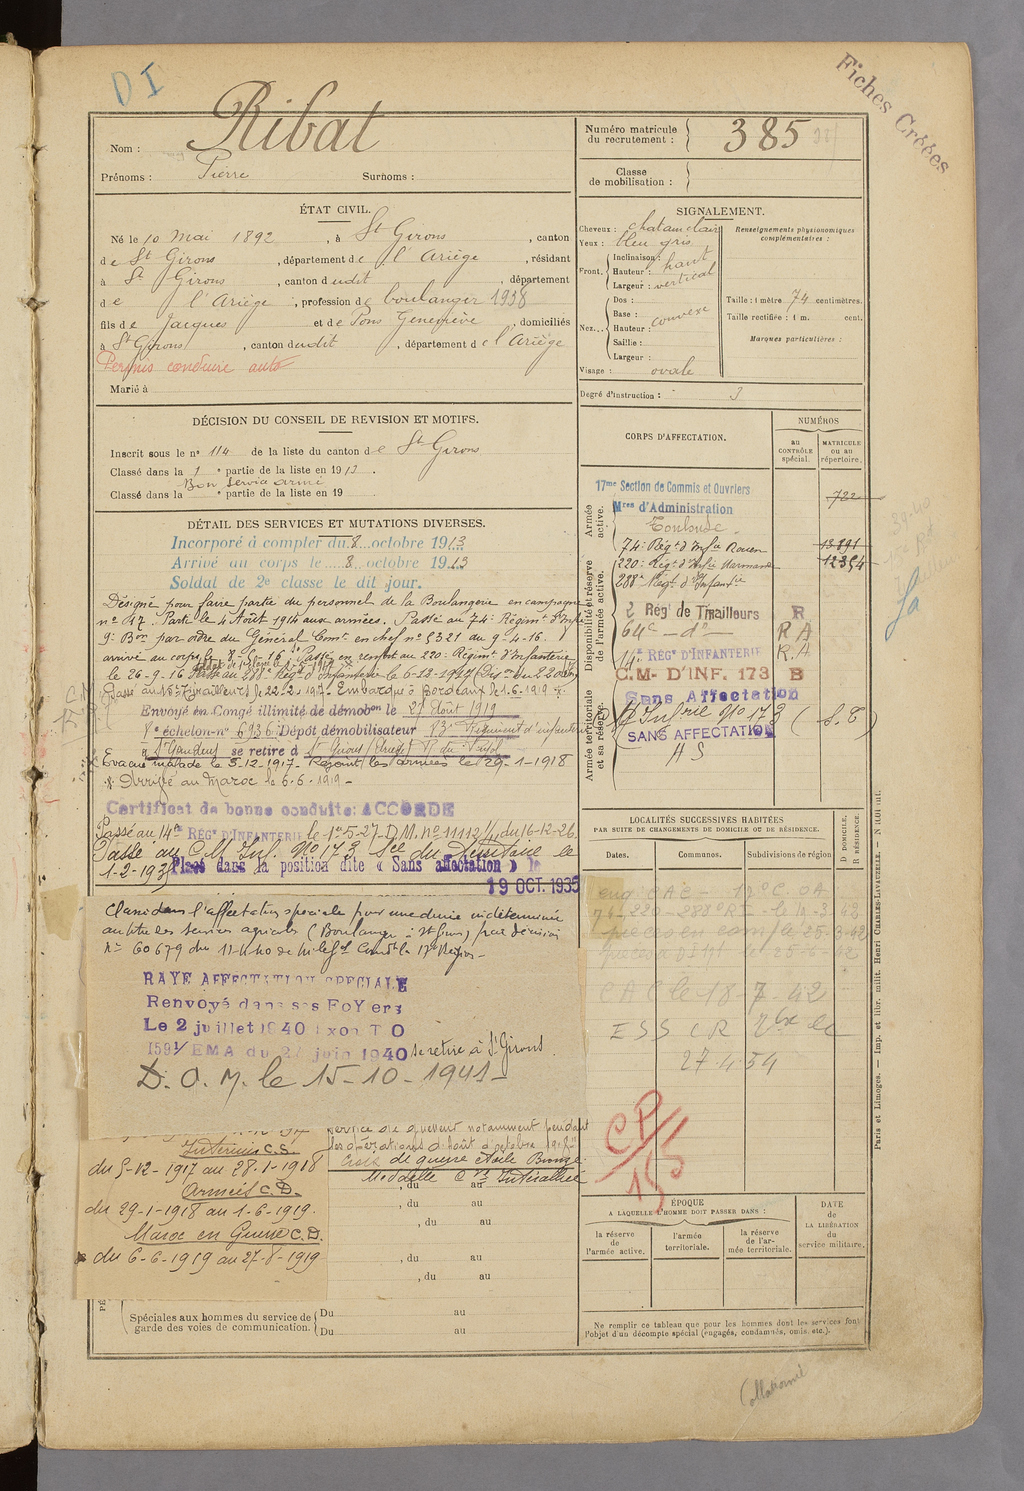 D I
Fiches Créées
Nom : Ribat
Prénoms : Pierre Surnoms :
Numéro matricule du recrutement : 385
Classe de mobilisation :
ÉTAT CIVIL.
Né le 10 Mai 1892, à St Girons, canton
de St Girons, département de l'Ariège, résidant
à St Girons, canton dudit, département
de l'Ariège, profession de boulanger 1938
fils de Jacques et de Pons Geneviève, domiciliés
à St Girons, canton dudit, département de l'Ariège
Permis conduire auto
Marié à
SIGNALEMENT.
Cheveux : chatain clair
Yeux : bleu gris
Front. Inclinaison :
Hauteur : haut
Largeur : vertical
Nez... Dos :
Base :
Hauteur : convexe
Saillie :
Largeur :
Visage : ovale
Renseignements physionomiques complémentaires :
Taille : 1 mètre 74 centimètres.
Taille rectifiée : 1 m. cent.
Marques particulières :
Degré d'instruction : 3
DÉCISION DU CONSEIL DE REVISION ET MOTIFS.
Inscrit sous le no 114 de la liste du canton de St Girons
Classé dans la 1e partie de la liste en 1913.
Bon Service armé
Classé dans la e partie de la liste en 19
DÉTAIL DES SERVICES ET MUTATIONS DIVERSES.
Incorporé à compter du 8 octobre 1913
Arrivé au corps le 8 octobre 1913
Soldat de 2e classe le dit jour.
Désigné pour faire partie du personnel de la Boulangerie en campagne
no 17. Parti le 4 Août 1914 aux armées. Passé au 74e Régimt d'Infie
9e Bon par ordre du Général Comt en chef no 5321 du 9-4-16.
arrivé au corps le Passé en renfort au 220e Régimt d'Infanterie
le 26-9-16 Passé au 288e Régt d'Infanterie le 6-12-1917
Passé au Tirailleurs le 22-2-19 Embarqué à Bordeaux le 1-6-1919
Envoyé en Congé illimité de démobon le 27 Août 1919
échelon no 6936 Dépôt démobilisateur 83e Régiment d'infanterie
St Gaudens se retire à St Girons
Evacué malade le 5-12-1917 Rejoint les armées le 29-1-1918
Arrivé au Maroc le 6-6-1919
Certificat de bonne conduite: ACCORDÉ
Passé au 14e RÉGt D'INFANTERIE le 1-5-27 D.M. no 11112 du 16-12-26
Passé au C.M. Inf. No 173 le
1-2-193
Placé dans la position dite « Sans affectation » le
19 OCT. 1935
Classé dans l'affectation spéciale pour une durée indéterminée
au titre des services agricoles (Boulanger à St Girons) par décision
No 60679 du 11-4-40 de la 17e Région
RAYE AFFECTATION SPECIALE
Renvoyé dans ses FoYers
Le 2 juillet 1940
EMA du juin 1940 se retire à St Girons
D.O.M. le 15-10-1941
Intérieur C.S.
du 5-12-1917 au 28-1-1918
Armées C.D.
du 29-1-1918 au 1-6-1919.
Maroc en Guerre C.D.
du 6-6-1919 au 27-8-1919
notamment pendant
les opérations d'août d'octobre
Croix de guerre étoile Bronze
Médaille Interalliée
, du au
, du au
, du au
, du au
, du au
Spéciales aux hommes du service de garde des voies de communication. Du au
Du au
CORPS D'AFFECTATION.
NUMÉROS
AU CONTRÔLE spécial.
MATRICULE OU AU répertoire.
Armée active.
17me Section de Commis et Ouvriers 722
Mres d'Administration
Toulouse
Disponibilité et réserve de l'armée active.
74e Régt d'Infie Rouen 13891
220e Régt d'Infie Marmande 12354
288e Regt d'Infanterie
2 Rég de Tirailleurs R
64e - do - R A
14e RÉGt D'INFANTERIE R.A
C.M- D'INF. 173 B
Armée territoriale et sa réserve.
Sans Affectation
No 173
SANS AFFECTATION
A S
LOCALITÉS SUCCESSIVES HABITÉES
PAR SUITE DE CHANGEMENTS DE DOMICILE OU DE RÉSIDENCE.
Dates.
Communes.
Subdivisions de région
D DOMICILE,
R RÉSIDENCE.
CAC le 18-7-42
ESS CR
27.4.54
CP/155
ÉPOQUE
A LAQUELLE L'HOMME DOIT PASSER DANS :
la réserve de l'armée active.
l'armée territoriale.
la réserve de l'armée territoriale.
DATE de LA LIBÉRATION du service militaire.
Ne remplir ce tableau que pour les hommes dont les services font
l'objet d'un décompte spécial (engagés, condamnés, omis, etc.).
Paris et Limoges. — Imp. et libr. milit. Henri CHARLES-LAVAUZELLE.
Collationné